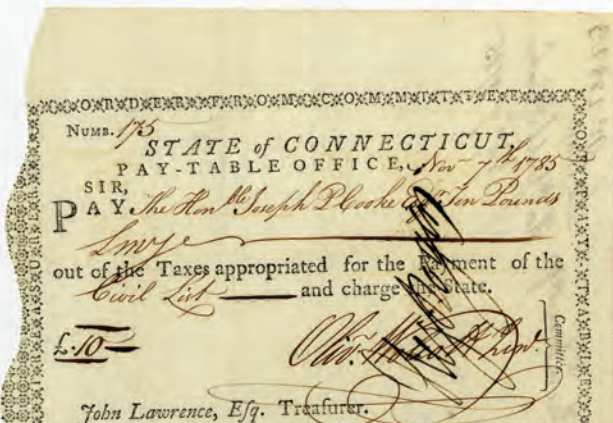 ORDER FROM COMMITTEE
Numb. 175
STATE of CONNECTICUT,
PAY-TABLE OFFICE, Nov 7th 1785
SIR,
PAY The Honble Joseph P Cooke Esqr Ten Pounds
Lmy
out of the Taxes appropriated for the Payment of the
Civil List and charge the State.
£.10
Olivr. Wolcott Junr.
Committee.
John Lawrence, Esq. Treasurer.